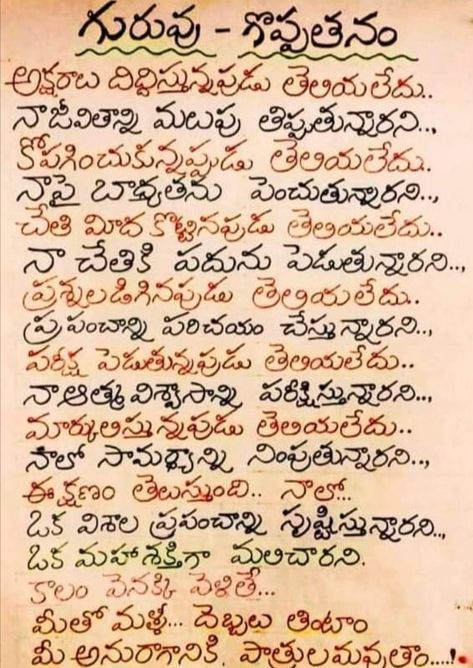 గురువు - గొప్పతనం
అక్షరాలు దిద్దిస్తున్నపుడు తెలియలేదు..
నాజీవితాన్ని మలుపు తిప్పుతున్నారని..,
కోపగించుకున్నప్పుడు తెలియలేదు..
నాపై బాధ్యతను పెంచుతున్నారని..,
చేతి మీద కొట్టినపుడు తెలియలేదు..
నా చేతికి పదును పెడుతున్నారని..,
ప్రశ్నలడిగినపుడు తెలియలేదు..
ప్రపంచాన్ని పరిచయం చేస్తున్నారని..,
పరీక్ష పెడుతున్నపుడు తెలియలేదు..
నాఆత్మవిశ్వాసాన్ని పరీక్షిస్తున్నారని..,
మార్కులిస్తున్నపుడు తెలియలేదు..
నాలో సామర్థ్యాన్ని నింపుతున్నారని..,
ఈక్షణం తెలుస్తుంది.. నాలో...
ఒక విశాల ప్రపంచాన్ని సృష్టిస్తున్నారని..,
ఒక మహాశక్తిగా మలిచారని.
కాలం వెనక్కి వెళితే...
మీతో మళ్లీ... దెబ్బలు తింటాం
మీ అనురాగానికి పాత్రులమవుతాం....!